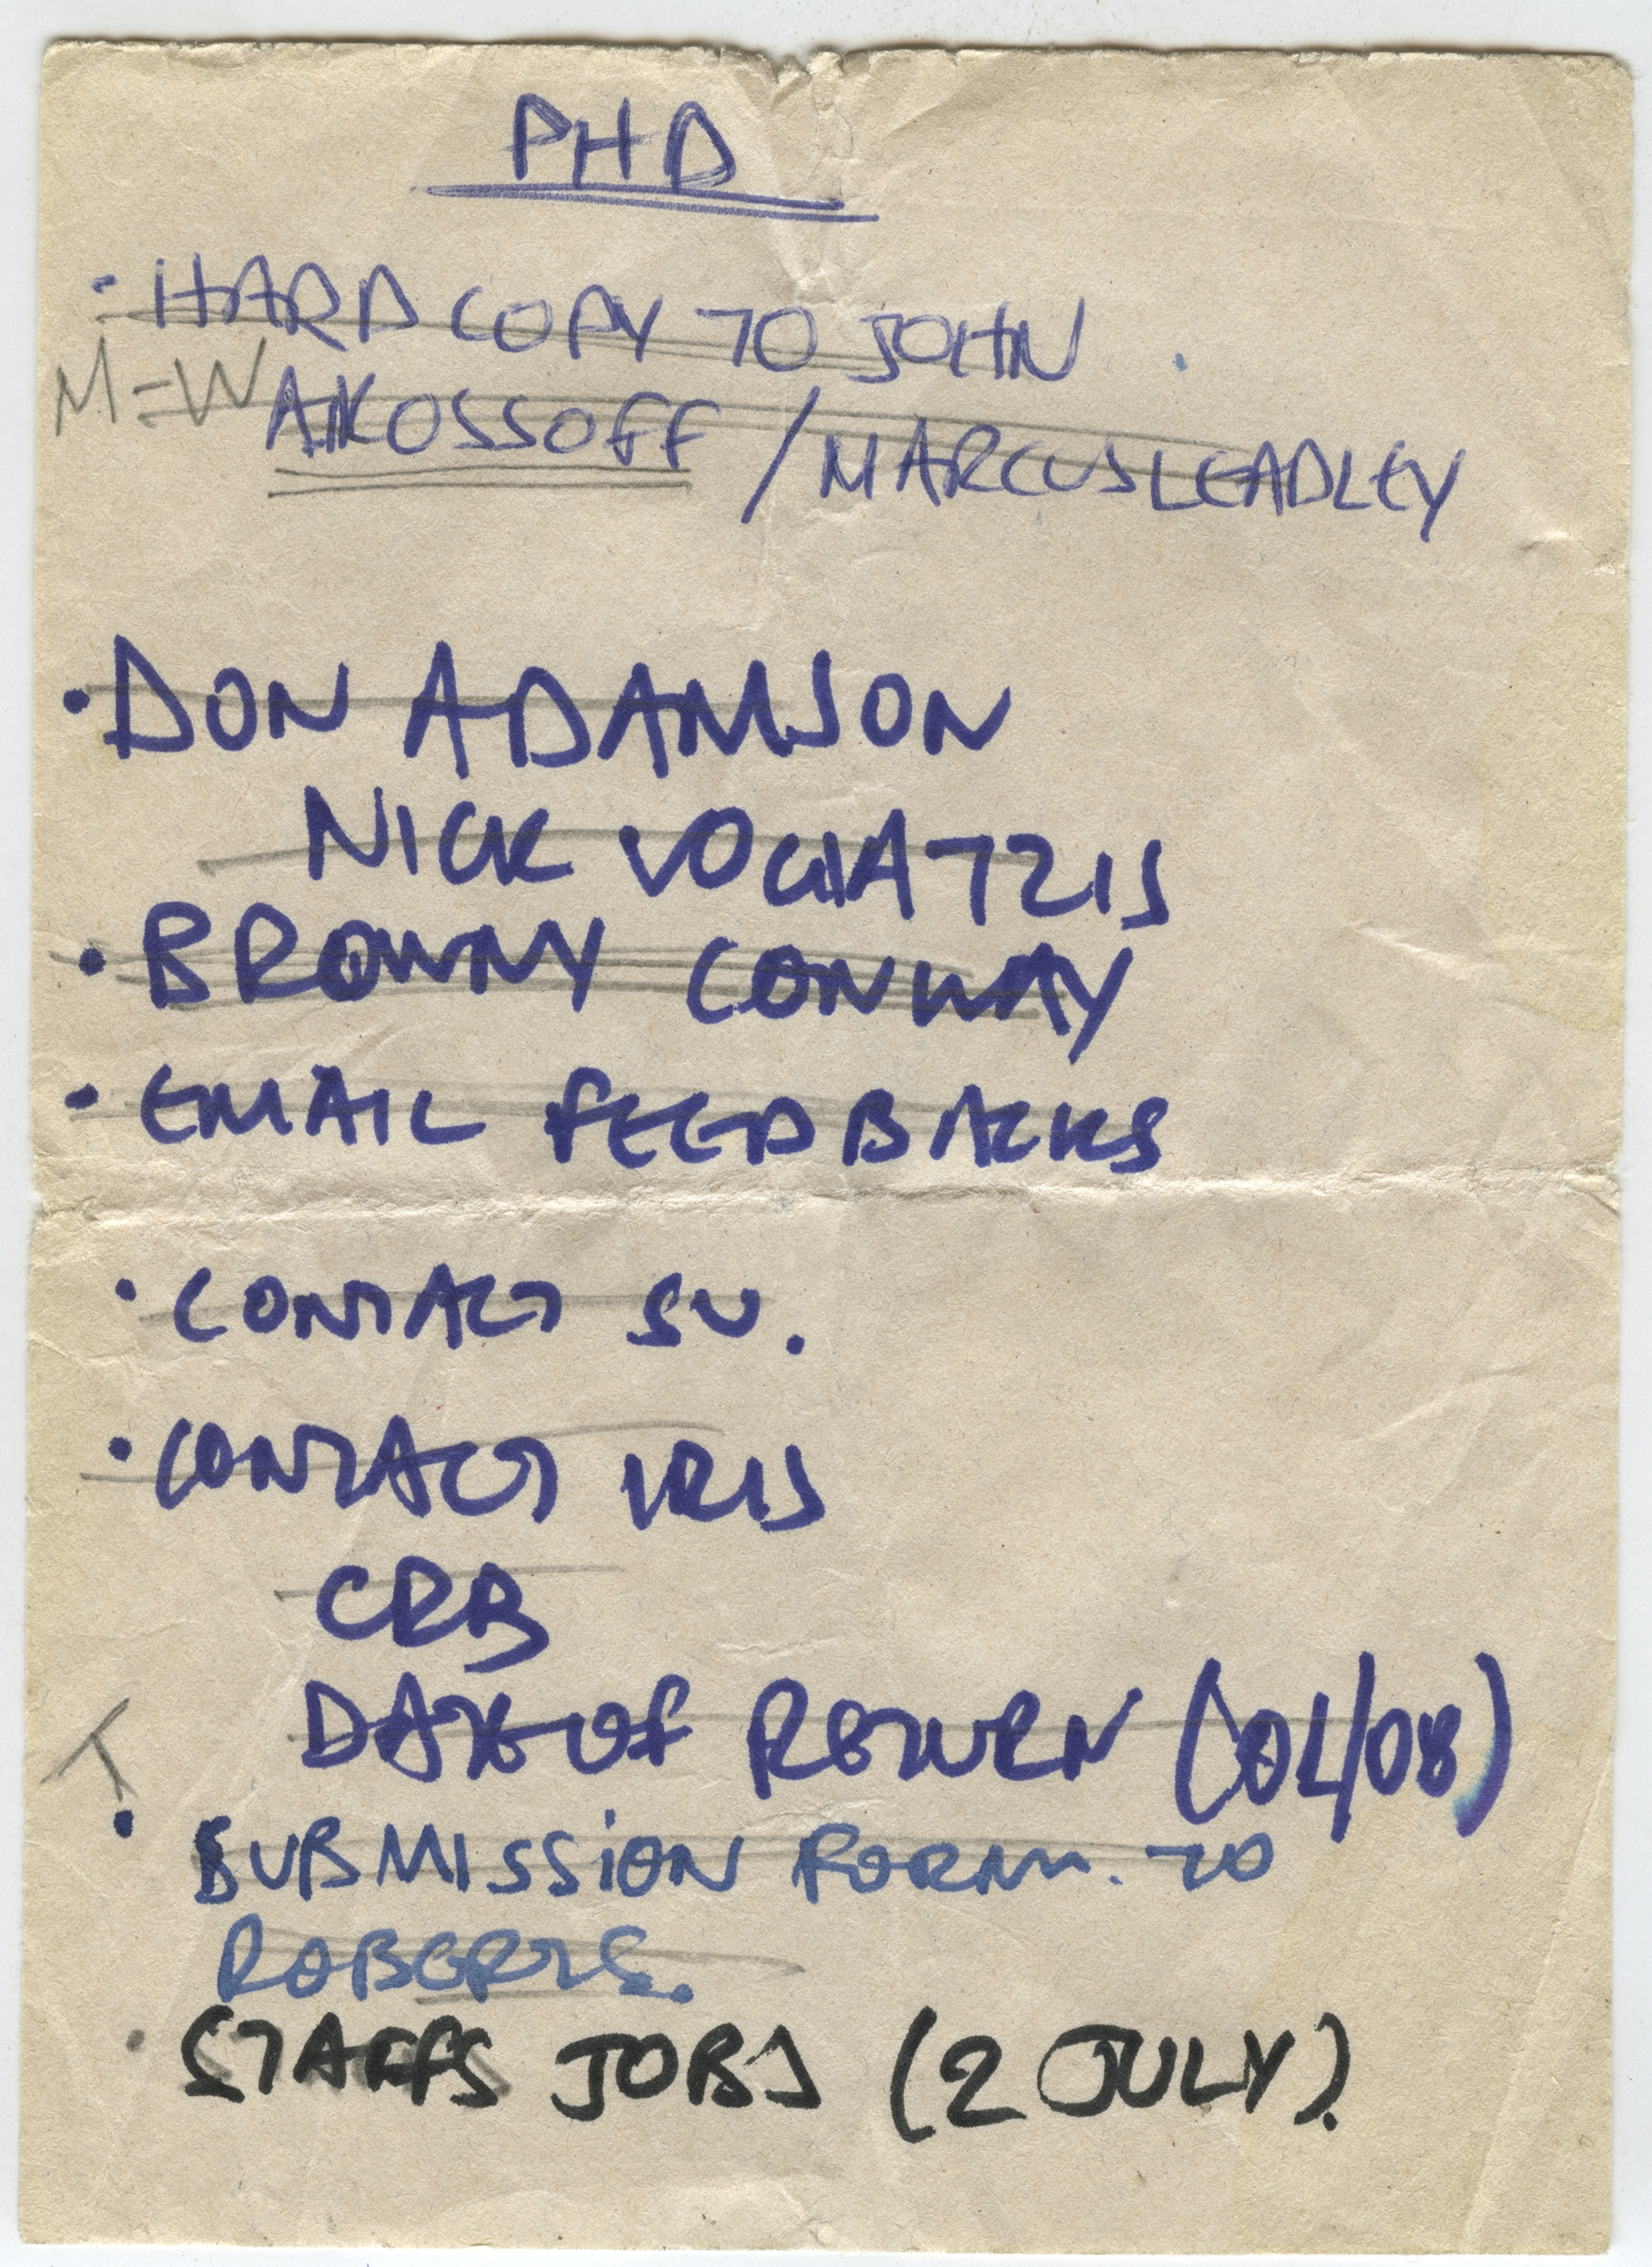 PHD
· HARD COPY TO JOHN
M=W
AIKOSSOFF / MARCUS LEADLEY
· DON ADAMSON
NICK VOGIATZIS
· BRONNY CONWAY
· EMAIL FEEDBACKS
· CONTACT SU.
· CONTACT IRIS
CRB
DATE OF RETURN (01/08)
T
· SUBMISSION FORM. TO
ROBERTS.
· STAFFS JOBS (2 JULY).